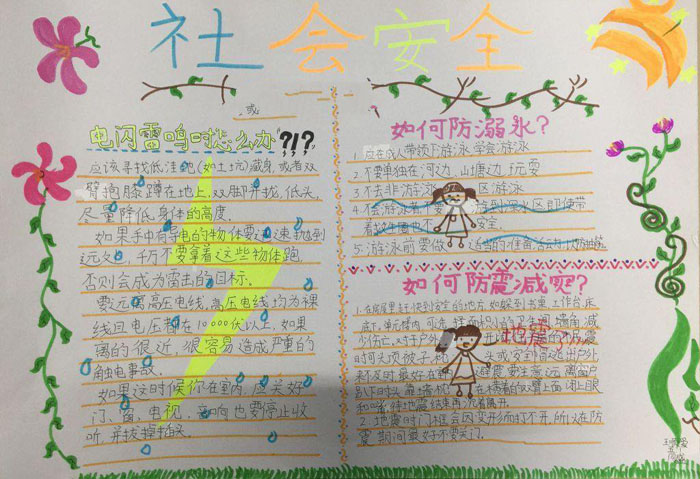 社会安全
电闪雷鸣时怎么办？!？
应该寻找低洼地(如土坑)藏身,或者双
臂抱膝蹲在地上,双脚并拢,低头,
尽量降低身体的高度。
如果手中有导电的物体要迅速抛到
远处,千万不要拿着这些物体跑
否则会成为雷击的目标。
要远离高压电线,高压电线均为裸
线且电压都在10000伏以上,如果
离的很近,很容易造成严重的
触电事故。
如果这时候你在室内,应关好
门、窗,电视、音响也要停止收
听,并拔掉插头。
如何防溺水?
1.应在成人带领下游泳,学会游泳
2.不要单独在河边、山塘边玩耍
3.不去非游泳区游泳
4.不会游泳者不要游到深水区,即使带
着救生圈也不安全。
5.游泳前要做适当的准备活动,以防抽筋。
如何防震减灾?
地震
少伤亡,对于户外
时可头顶被子、枕或安全帽逃出户外
来不及时最好在室内避震,要注意远离窗户
趴下时头靠墙,在横着的双臂上面闭上眼
和嘴,待地震结束再沉着离开。
2.地震时门框会因变形而打不开,所以在防
震期间最好不要关门。